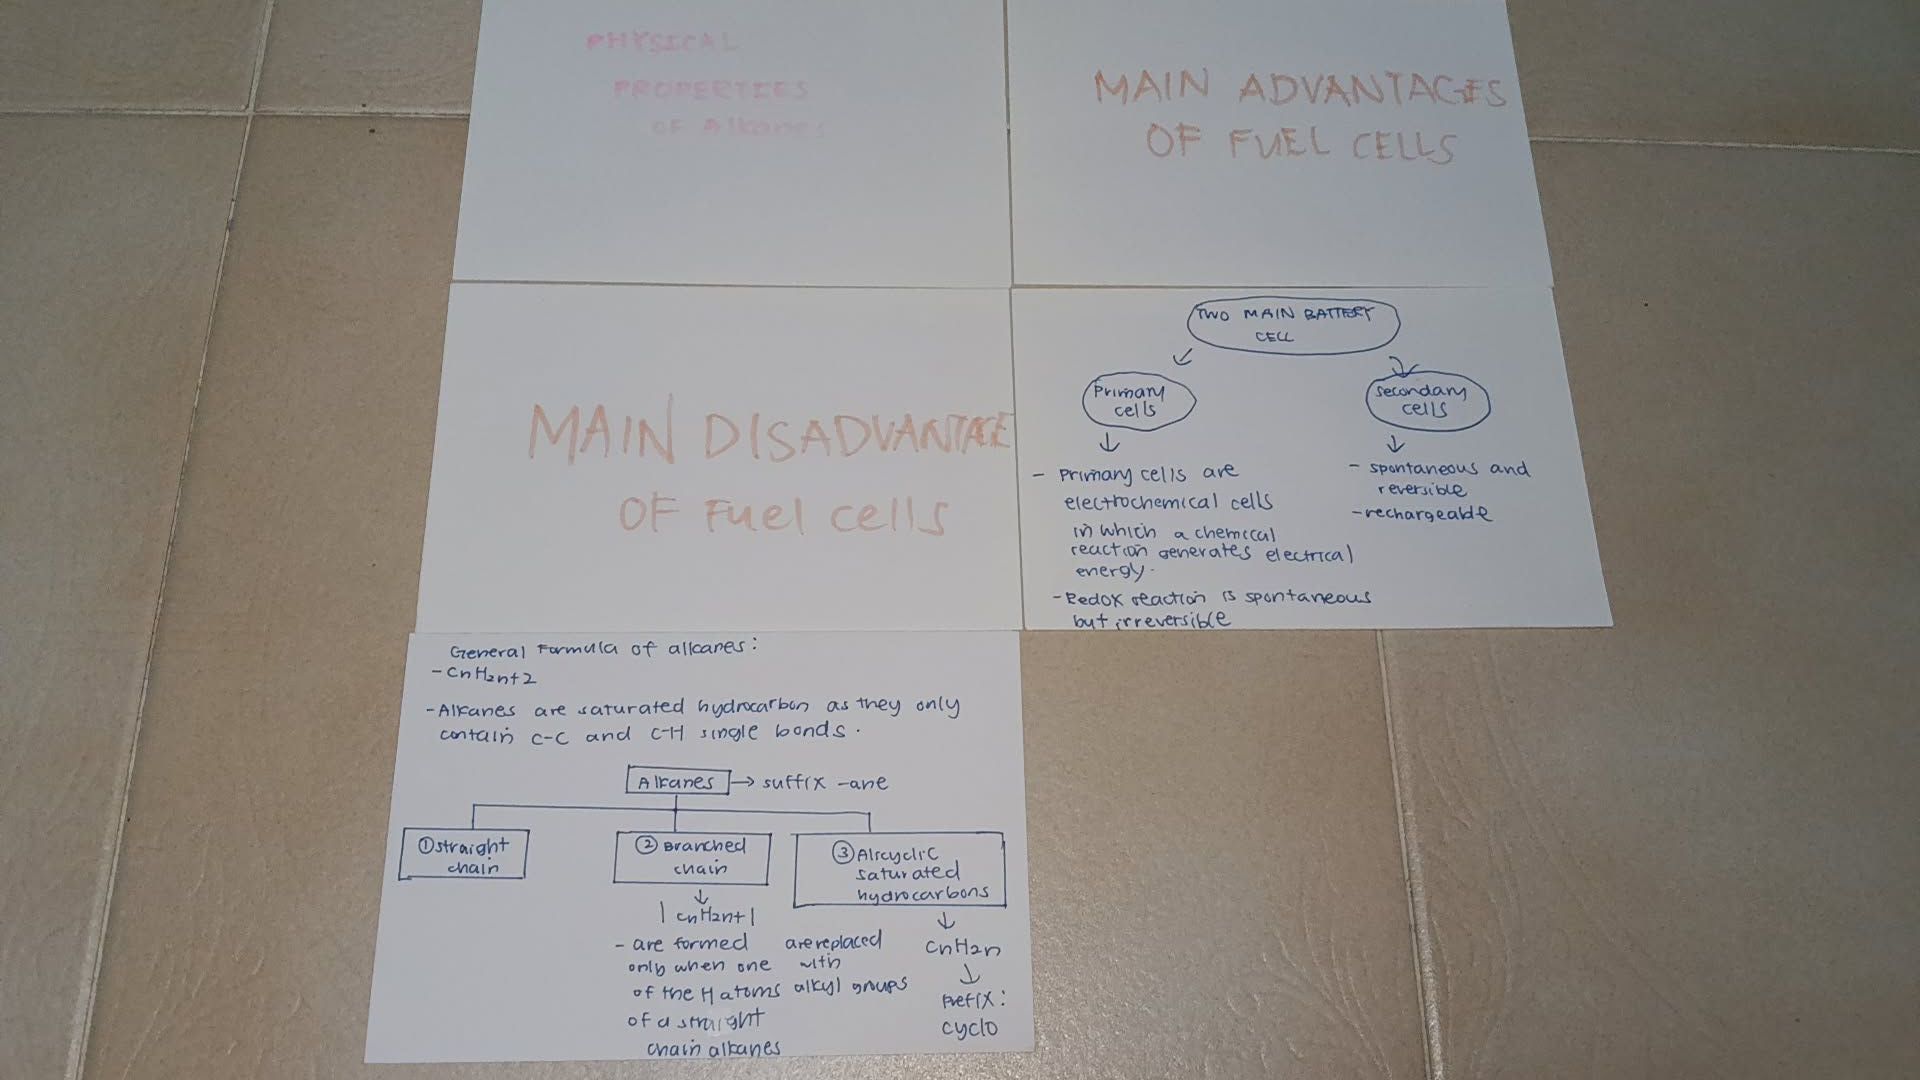 PHYSICAL
PROPERTIES
OF Alkanes
MAIN ADVANTAGES
OF FUEL CELLS
MAIN DISADVANTAGE
OF Fuel cells
TWO MAIN BATTERY
CELL
Primary
cells
- Primary cells are
electrochemical cells
in which a chemical
reaction generates electrical
energy.
- Redox reaction is spontaneous
but irreversible
secondary
cells
- spontaneous and
reversible
- rechargeable
General Formula of alkanes:
- CnH2n+2
- Alkanes are saturated hydrocarbon as they only
contain C-C and C-H single bonds.
Alkanes → suffix -ane
① straight
chain
② Branched
chain
| CnH2n+1
- are formed
only when one
of the H atoms
of a straight
chain alkanes
are replaced
with
alkyl groups
③ Alicyclic
saturated
hydrocarbons
CnH2n
Prefix:
cyclo